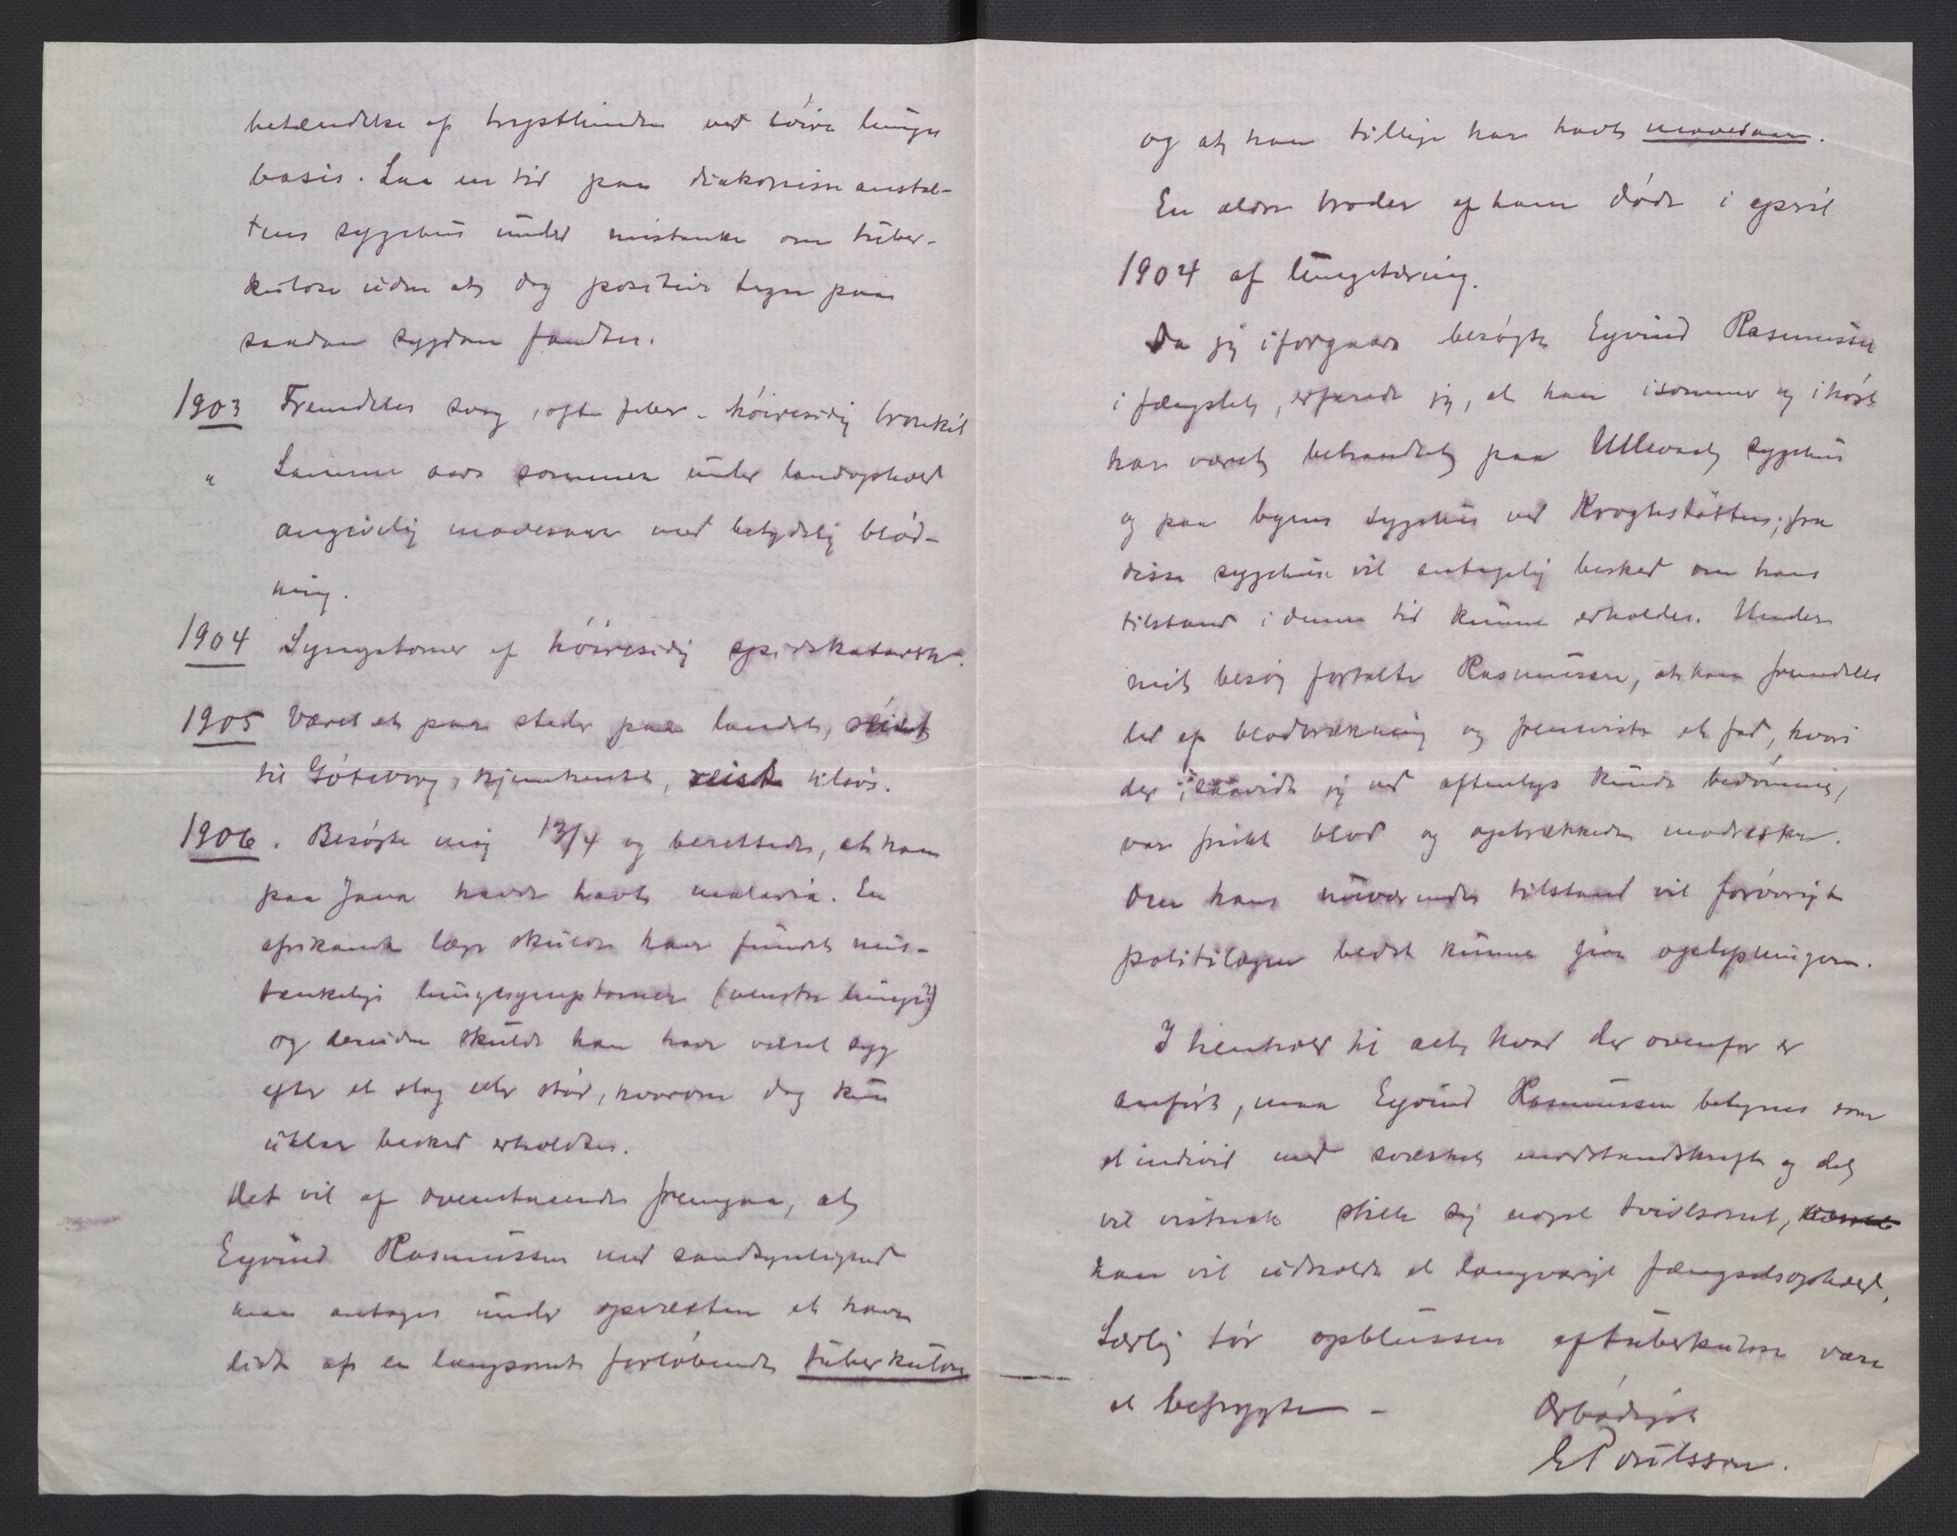 betændelse af brysthinden ved høire lunges
basis. Laa en tid paa diakonisseanstal-
tens sygehus under mistanke om tuber-
kulose uden at dog positive tegn paa
saadan sygdom fandtes.
1903 Fremdeles svag, ofte feber - høiresidig bronkit
" Samme aars sommer under landophold
angivelig mavesaar med betydelig blød-
ning.
1904 Symptomer af høiresidig spidskatarrh.
1905 Været et par steder paa landet, reist
til Göteborg, hjemsendt, reist tilsøs.
1906. Besøgte mig 13/4 og berettede, at han
paa Java havde havt malaria. En
afrikansk læge skulde have fundet mis-
tænkelige lungesymptomer (venstre lunge?)
og desuden skulde han have været syg
efter et slag eller stød, hvorom dog kun
uklar besked erholdtes.
Det vil af ovenstaaende fremgaa, at
Eyvind Rasmussen med sandsynlighed
maa antages under opvæksten at have
lidt af en langsomt forløbende tuberkulose
og at han tillige har havt mavesaar.
En ældre broder af ham døde i april
1904 af lungetæring.
Da jeg iforgaars besøgte Eyvind Rasmussen
i fængslet, erfarede jeg, at han isommer og ihøst
har været behandlet paa Ullevaal sygehus
og paa byens sygehus ved Krohgstøtten; fra
disse sygehuse vil antagelig besked om hans
tilstand i denne tid kunne erholdes. Under
mit besøg fortalte Rasmussen, at han fremdeles
led af blodbrækning og fremviste et fad, hvori
der, saavidt jeg ved aftenlys kunde bedømme,
var friskt blod og opbrækkede madrester.
Om hans nuværende tilstand vil forøvrigt
politilægen bedst kunne give oplysninger.
I henhold til alt, hvad der ovenfor er
anført, maa Eyvind Rasmussen betegnes som
et individ med svækket modstandskraft og det
vil vistnok stille sig noget tvivlsomt,
han vil udholde et langvarigt fængselsophold.
Særlig tør opblussen af tuberkulose være
at befrygte -
Ærbødigst
E Poulsson.